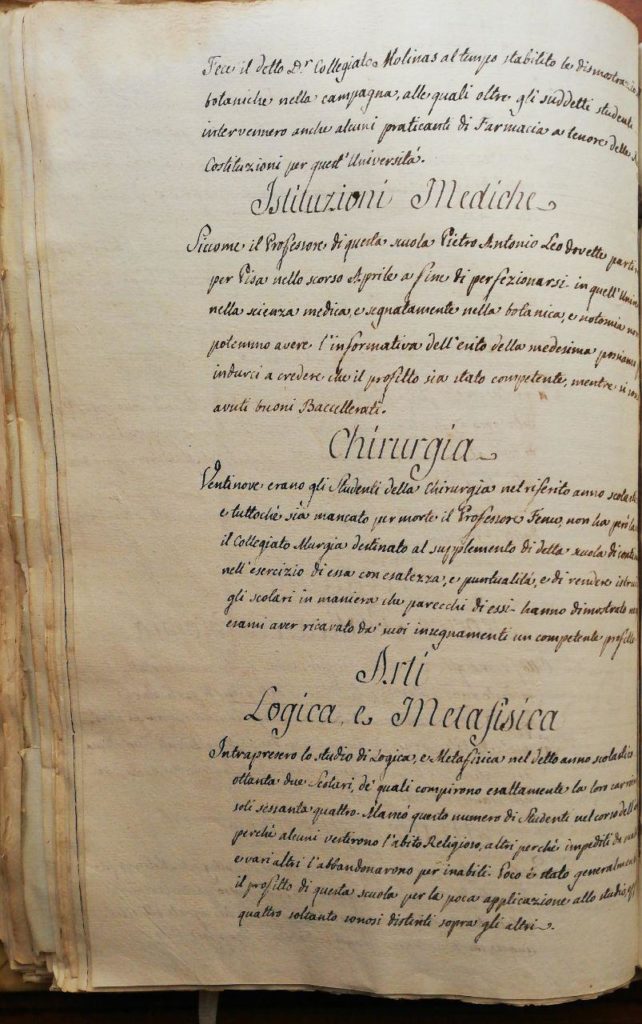 Fece il detto D.r Collegiato Molinas al tempo stabilito le dismostrazio
botaniche nella campagna, alle quali oltre gli suddetti studenti
intervennero anche alcuni praticanti di Farmacia a tenore delle
Costituzioni per quest'Università.
Istituzioni Mediche
Siccome il Professore di questa scuola Pietro Antonio Leo dovette parti
per Pisa nello scorso Aprile a fine di perfezionarsi in quell'Univ
nella scienza medica, e segnatamente nella botanica, e notomia non
potemmo avere l'informativa dell'esito della medesima possiamo
indurci a credere che il profitto sia stato competente, mentre si son
avuti buoni Baccellerati.
Chirurgia
Ventinove erano gli Studenti della Chirurgia nel riferito anno scolas
e tuttochè sia mancato per morte il Professore Fenu, non ha però la
il Collegiato Murgia destinato al supplemento di detta scuola di cont
nell'esercizio di essa con esatezza, e puntualità, e di rendere istru
gli scolari in maniera che parecchi di essi hanno dimostrato
esami aver ricavato da' suoi insegnamenti un competente profitto
Arti
Logica, e Metafisica
Intrapresero lo studio di Logica, e Metafisica nel detto anno scolastico
ottanta due Scolari, de' quali compirono esattamente la loro carrier
soli sessanta quattro. Mancò questo numero di Studenti nel corso dell'
perchè alcuni vestirono l'abito Religioso, altri perchè impediti da
e vari altri l'abbandonarono per inabili. Poco è stato generalment
il profitto di questa scuola per la poca applicazione allo studio,
quattro soltanto sonosi distinti sopra gli altri.